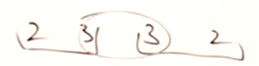 2 3 3 2